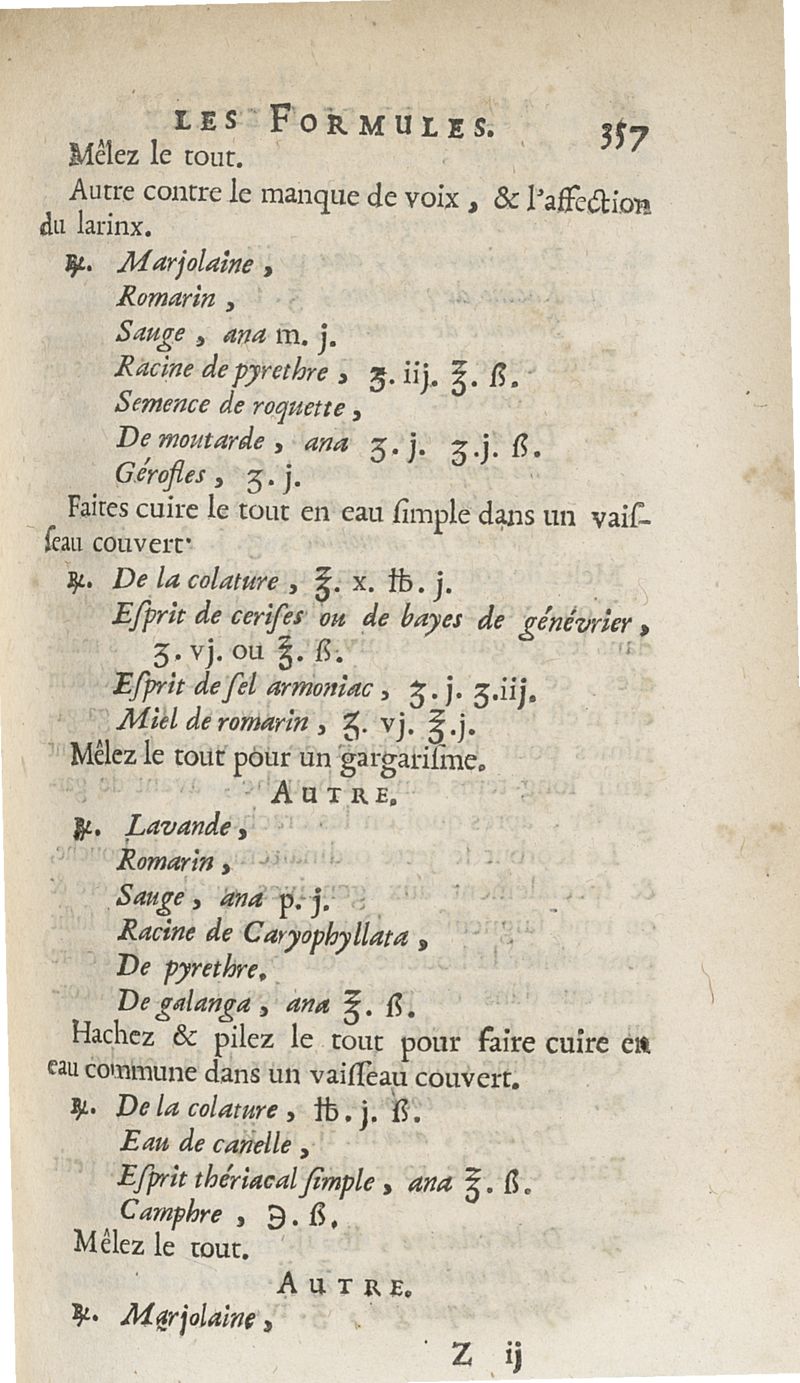 LES FORMULES. 357
Mêlez le tout.
Autre contre le manque de voix, & l'affection
du larinx.
℞. Marjolaine,
Romarin,
Sauge, ana m. j.
Racine de pyrethre, ʒ. iij. ℥. ß.
Semence de roquette,
De moutarde, ana ʒ. j. ʒ. j. ß.
Gérofles, ʒ. j.
Faites cuire le tout en eau ſimple dans un vaiſ-
ſeau couvert.
℞. De la colature, ℥. x. ℔. j.
Eſprit de ceriſes ou de bayes de génévrier,
ʒ. vj. ou ℥. ß.
Eſprit de ſel armoniac, ʒ. j. ʒ. iij.
Miel de romarin, ʒ. vj. ℥. j.
Mêlez le tout pour un gargariſme.
AUTRE.
℞. Lavande,
Romarin,
Sauge, ana p. j.
Racine de Caryophyllata,
De pyrethre,
De galanga, ana ℥. ß.
Hachez & pilez le tout pour faire cuire en
eau commune dans un vaiſſeau couvert.
℞. De la colature, ℔. j. ß.
Eau de canelle,
Eſprit thériacal ſimple, ana ℥. ß.
Camphre, ℈. ß.
Mêlez le tout.
AUTRE.
℞. Marjolaine,
Z ij